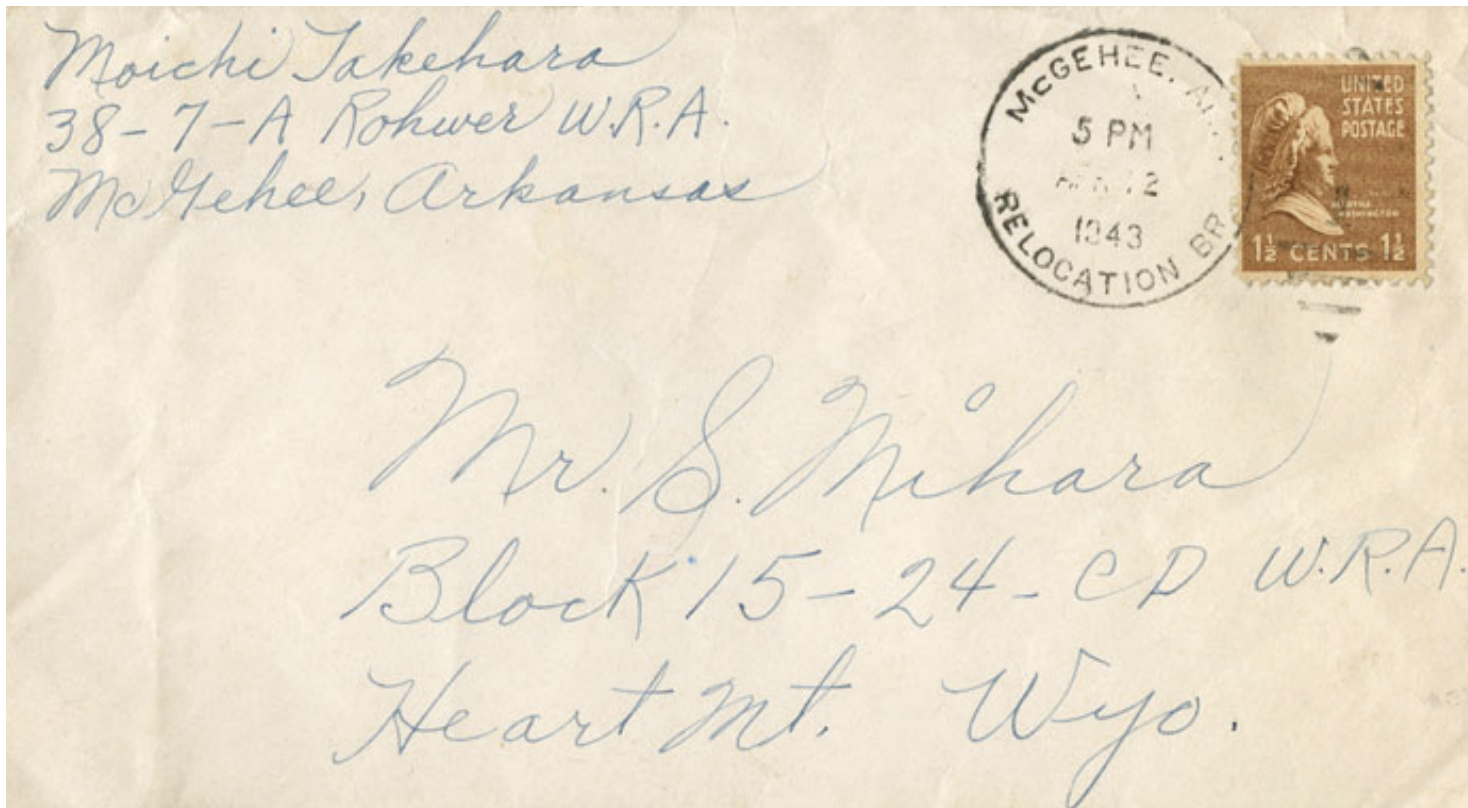 Moichi Takehara
38-7-A Rohwer W.R.A.
McGehee, Arkansas
McGEHEE, A
5 PM
12
1943
RELOCATION BR
UNITED
STATES
POSTAGE
MARTHA
WASHINGTON
1½ CENTS 1½
Mr. S. Mihara
Block 15-24-CD W.R.A.
Heart Mt. Wyo.